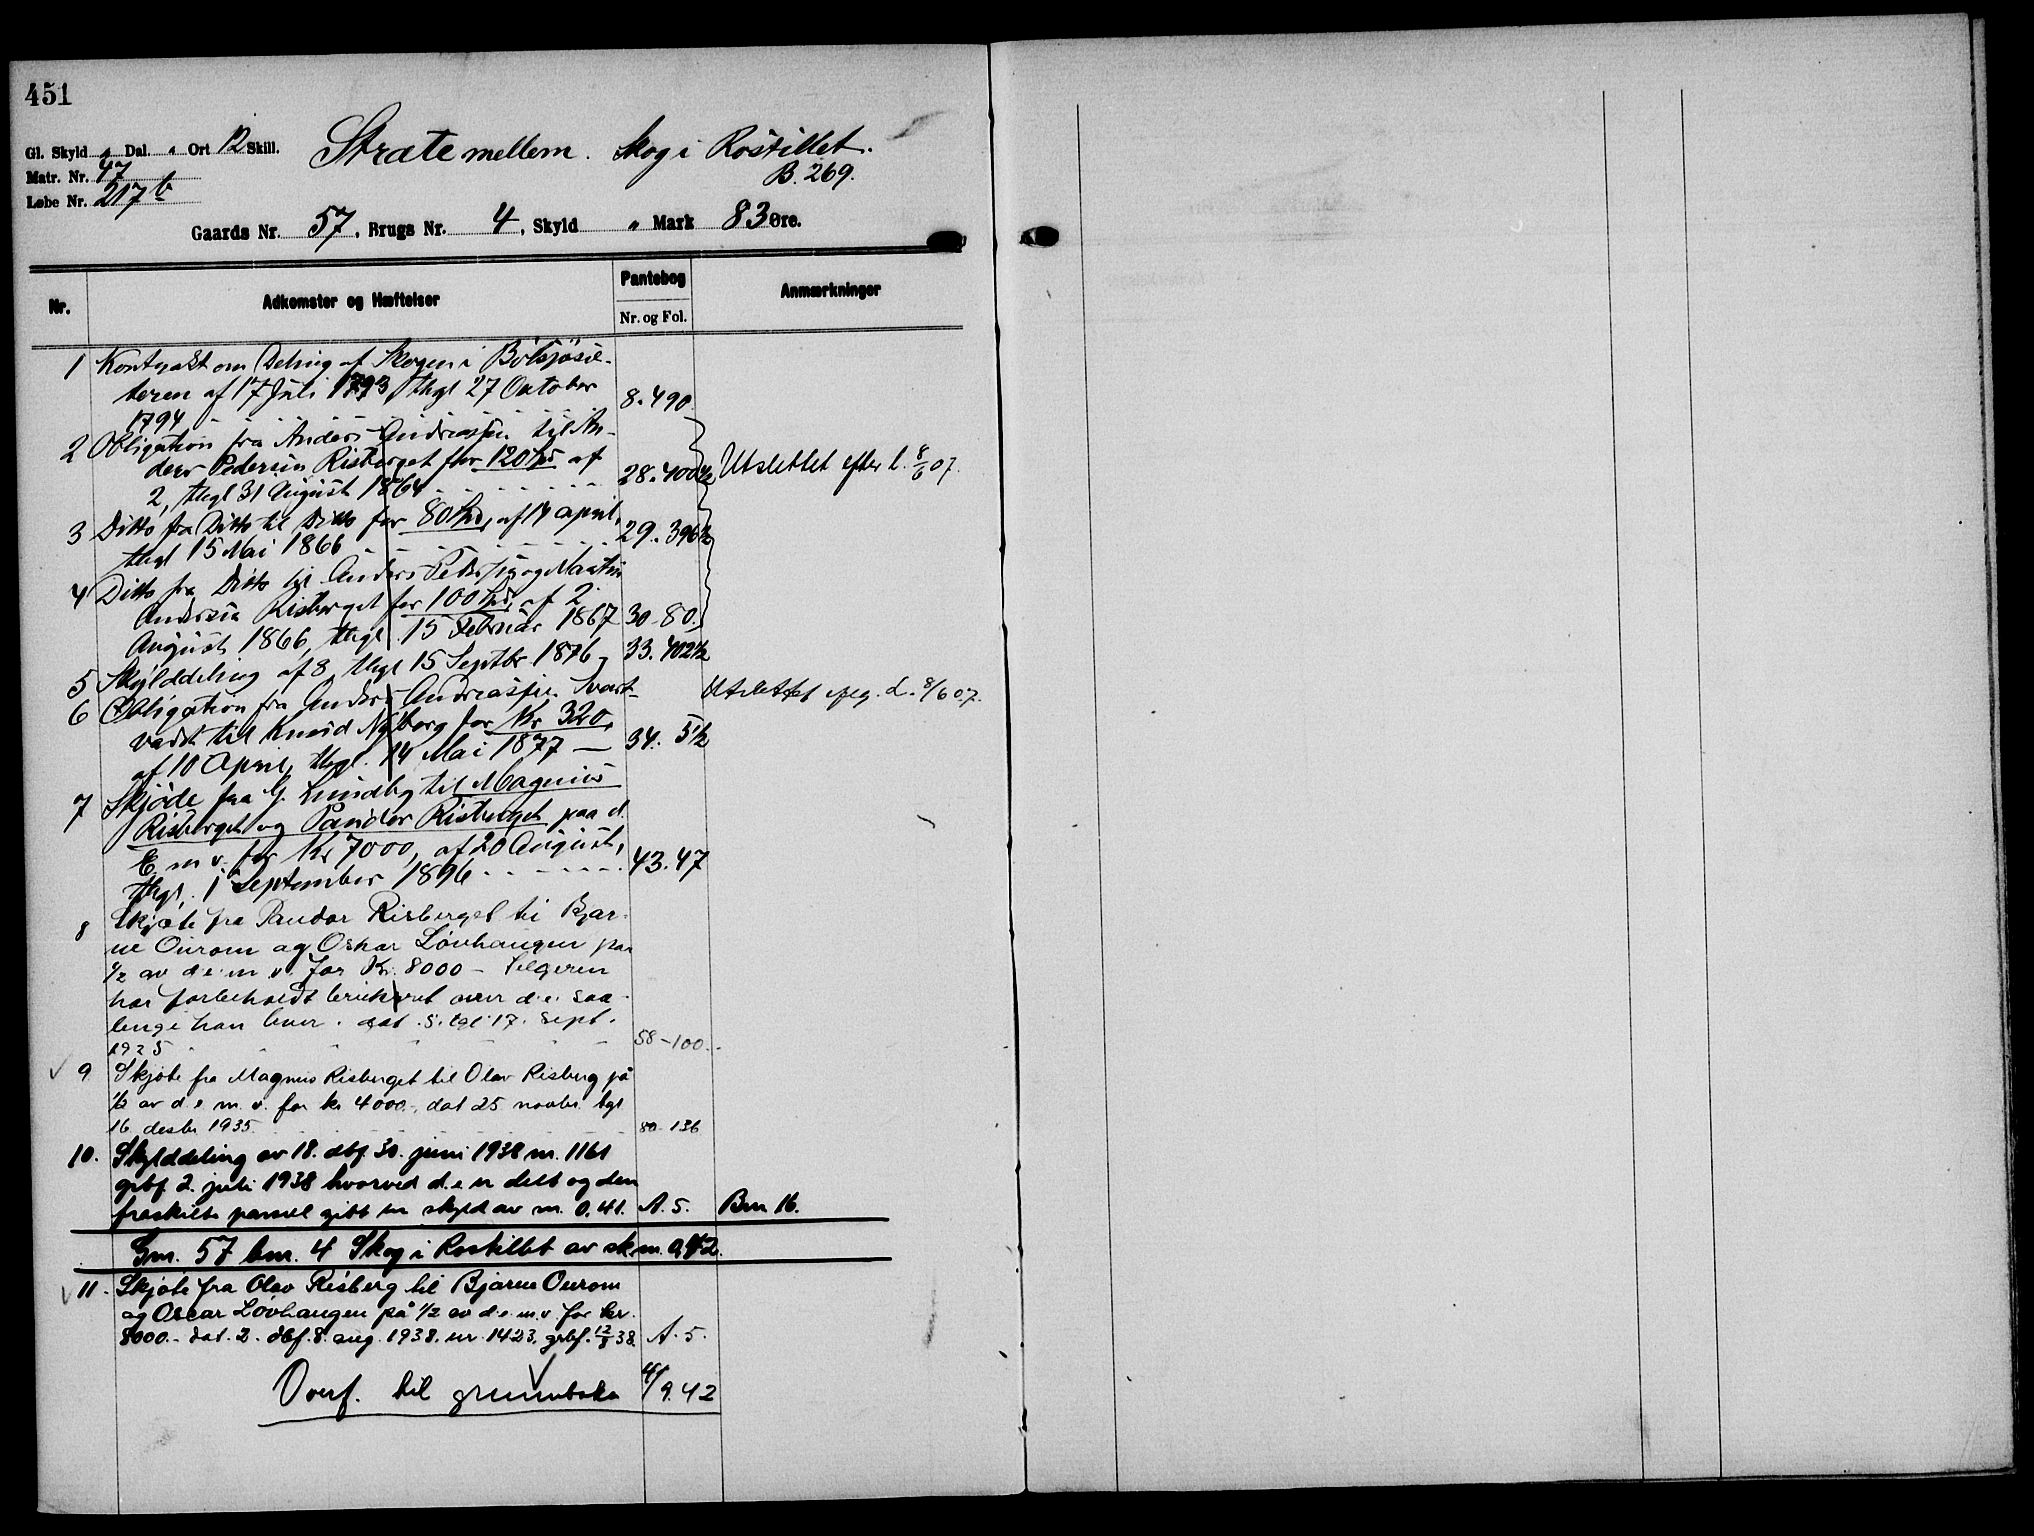 451
Gl. Skyld „ Dal. „ Ort 12 Skill.
Stræte mellem. Skog i Rostillet.
Matr. Nr. 47
B. 269.
Løbe Nr. 217 b
Gaards Nr. 57, Brugs Nr. 4, Skyld „ Mark 83 Øre.
Nr. Adkomster og Hæftelser Pantebog Anmærkninger
Nr. og Fol.
1 Kontrakt om Deling af Skogen i
teren af 17 Juli 1793, thgl 27 Oktober 8. 490.
1794
2 Obligation fra Anders Andreassen til An-
ders Pedersen Risberget for 120 Spd af 28. 400 Utslettet efter l. 8/6 07.
2, thgl 31 August 1864
3 Ditto fra Ditto til Ditto for 80 Spd, af 14 april, 29. 396½
thgl 15 Mai 1866
4 Ditto fra Ditto til Anders Peders og Martin
Andersen Risberget for 100 Spd, af 2
August 1866, thgl. 15 Februar 1867 30 - 80.
5 Skylddeling af 8, thgl 15 Septbr 1876 - 33. 402½
6 Obligation fra Anders Andreassen Svart- Utslettet efter l. 8/6 07.
vadet til Knud Nyborg for Kr 320,
af 10 April, thgl. 14 Mai 1877 — 34. 5½
7 Skjøde fra G. Lundby til Magnus
Risberget og Pauder Risberget paa d.
E. m v. for Kr 7000, af 20 August,
thgl. 1 September 1896 43. 47
8 Skjøte fra Paudar Risberget til Bjar-
ne Ourom og Oskar Løvhaugen paa
1/2 av d. e. m. v. for Kr. 8000 - Selgeren
har forbeholdt bruksret over d. e. saa-
lenge han lever. dat. 5. tgl. 17. sept.
1925 58 - 100.
9 Skjøte fra Magnus Risberget til Olav Risberg på
1/2 av d. e. m. v. for kr 4000.-, dat 25 novbr. tgl
16 desbr 1935 80 - 136
10. Skylddeling av 18. dbf. 30. juni 1938 nr. 1161
grbf. 2. juli 1938 hvorved d. e. er delt og den
fraskilte parsel gitt en skyld av m. 0.41. A. 5. Bnr. 16.
Gnr. 57 bnr. 4 Skog i Rostillet av skm. 0,42.
11. Skjøte fra Olav Risberg til Bjarne Ourom
og Oscar Løvhaugen på 1/2 av d. e. m. v. for kr.
8000.- dat. 2. dbf. 8. aug. 1938. nr. 1423, grbf. 12/8 38. A. 5.
Overf. til grunnboka 4/9.42